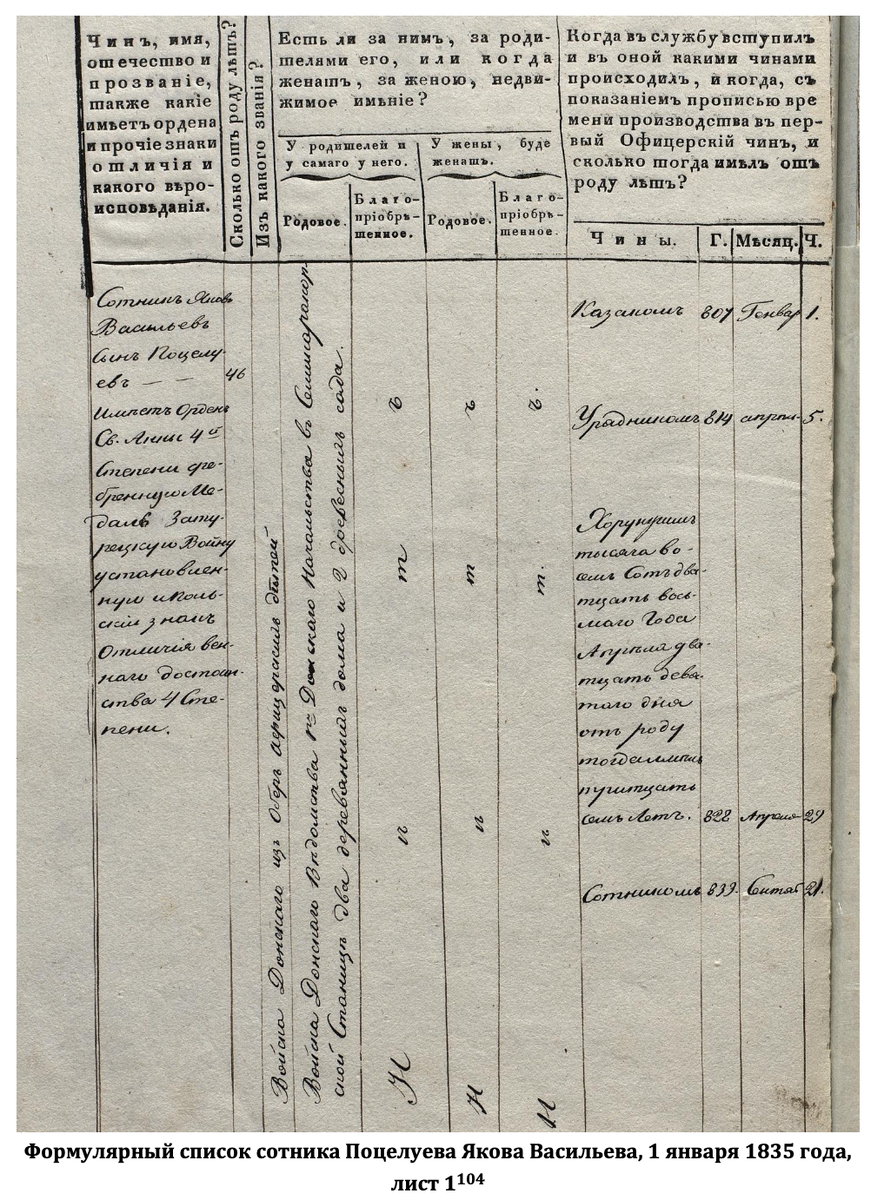 Чинъ, имя,
отечество и
прозваніе,
также какіе
имѣетъ ордена
и прочіе знаки
отличія и
какого вѣро-
исповѣданія.
Сколько отъ роду лѣтъ?
Изъ какого званія?
Есть ли за нимъ, за роди-
телями его, или когда
женатъ, за женою, недви-
жимое имѣніе?
У родителей и
у самаго у него.
У жены, буде
женатъ.
Родовое.
Благо-
пріобрѣ-
тенное.
Родовое.
Благо-
пріобрѣ-
тенное.
Когда въ службу вступилъ
и въ оной какими чинами
происходилъ, и когда, съ
показаніемъ прописью вре
мени производства въ пер-
вый Офицерскій чинъ, и
сколько тогда имѣлъ отъ
роду лѣтъ?
Чины.
Г.
Мѣсяц.
Ч.
Сотникъ Яковъ
Васильевъ
Сынъ Поцелу-
евъ — — 46
имѣетъ Орденъ
Св. Анны 4й
Степени сре-
бренную Ме-
даль Зату-
рецкую Войну
установлен-
ную иполь-
скій знакъ
Отличія воен-
наго достоин-
ства 4 Сте-
пени.
Войска Донскаго изъ Оберъ афицерскихъ дѣтей
Войска Донскаго Вѣдомства 1го Донскаго Начальства въ Семикаракор-
ской Станицѣ два деревянныхъ дома и 2 древесныхъ сада.
Н ѣ т ъ
Н ѣ т ъ
Н ѣ т ъ.
Казакомъ 807 Генвар 1.
Урядникомъ 814 апрѣл. 5.
Хорунжимъ
тысяча во-
семъ Сотъ два-
тцать вось-
маго Года
Апрѣля два-
тцать девя-
таго дня
отъ роду
тогда имѣлъ
тритцать
семь Летъ. 828 Апреля 29
Сотникомъ 833. Сентяб 21.
Формулярный список сотника Поцелуева Якова Васильева, 1 января 1835 года,
лист 1104